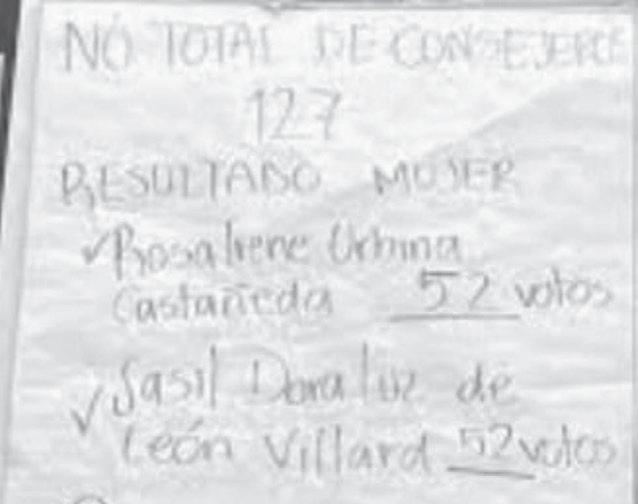 NO TOTAL DE CONSEJEROS
127
RESULTADO MUJER
✓Rosa Irene Urbina
Castañeda 52 votos
✓Sasil Dora luz de
León Villard 52 votos